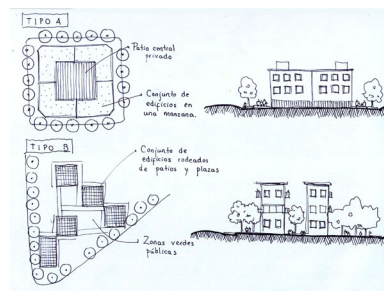 TIPO A
Patio central
privado
Conjunto de
edificios en
una manzana.
TIPO B
Conjunto de
edificios rodeados
de patios y plazas
Zonas verdes
públicas